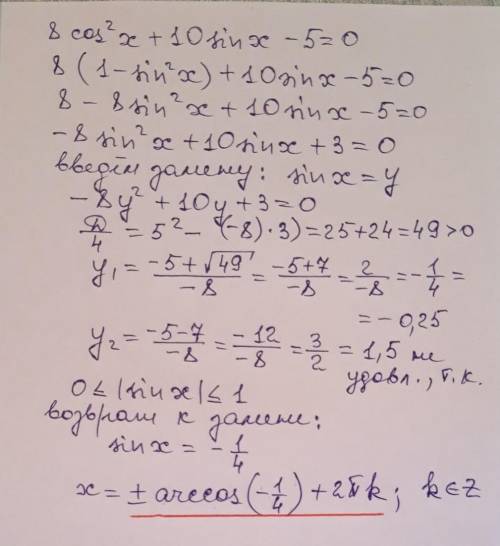 8 cos²x + 10 sinx - 5 = 0
8 (1 - sin²x) + 10 sinx - 5 = 0
8 - 8 sin²x + 10 sinx - 5 = 0
-8 sin²x + 10 sinx + 3 = 0
введём замену: sinx = y
-8y² + 10y + 3 = 0
D/4 = 5² - (-8)·3) = 25 + 24 = 49 > 0
y₁ = (-5 + √49)/-8 = (-5+7)/-8 = 2/-8 = -1/4 =
= -0,25
y₂ = (-5-7)/-8 = -12/-8 = 3/2 = 1,5 не
удовл., т.к.
0 ≤ |sin x| ≤ 1
возвращ к замене:
sinx = -1/4
x = ± arccos(-1/4) + 2πk; k∈Z